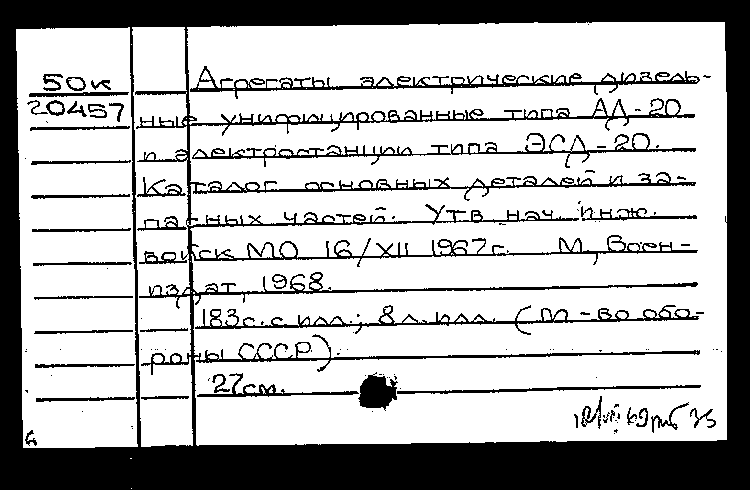 50к Агрегаты электрические дизель-
20457 ные унифицированные типа АД-20
и электростанции типа ЭСД-20.
Каталог основных деталей и за-
пасных частей. Утв нач. инж.
войск МО 16/XII 1967г. М, Воен-
издат, 1968.
183с. с илл.; 8 л. илл. (М-во обо-
роны СССР).
27см.